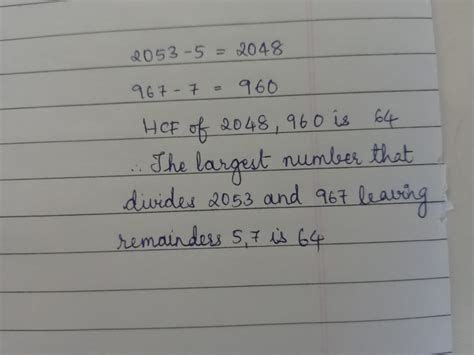 2053 - 5 = 2048
967 - 7 = 960
HCF of 2048, 960 is 64
∴ The largest number that
divides 2053 and 967 leaving
remainders 5,7 is 64